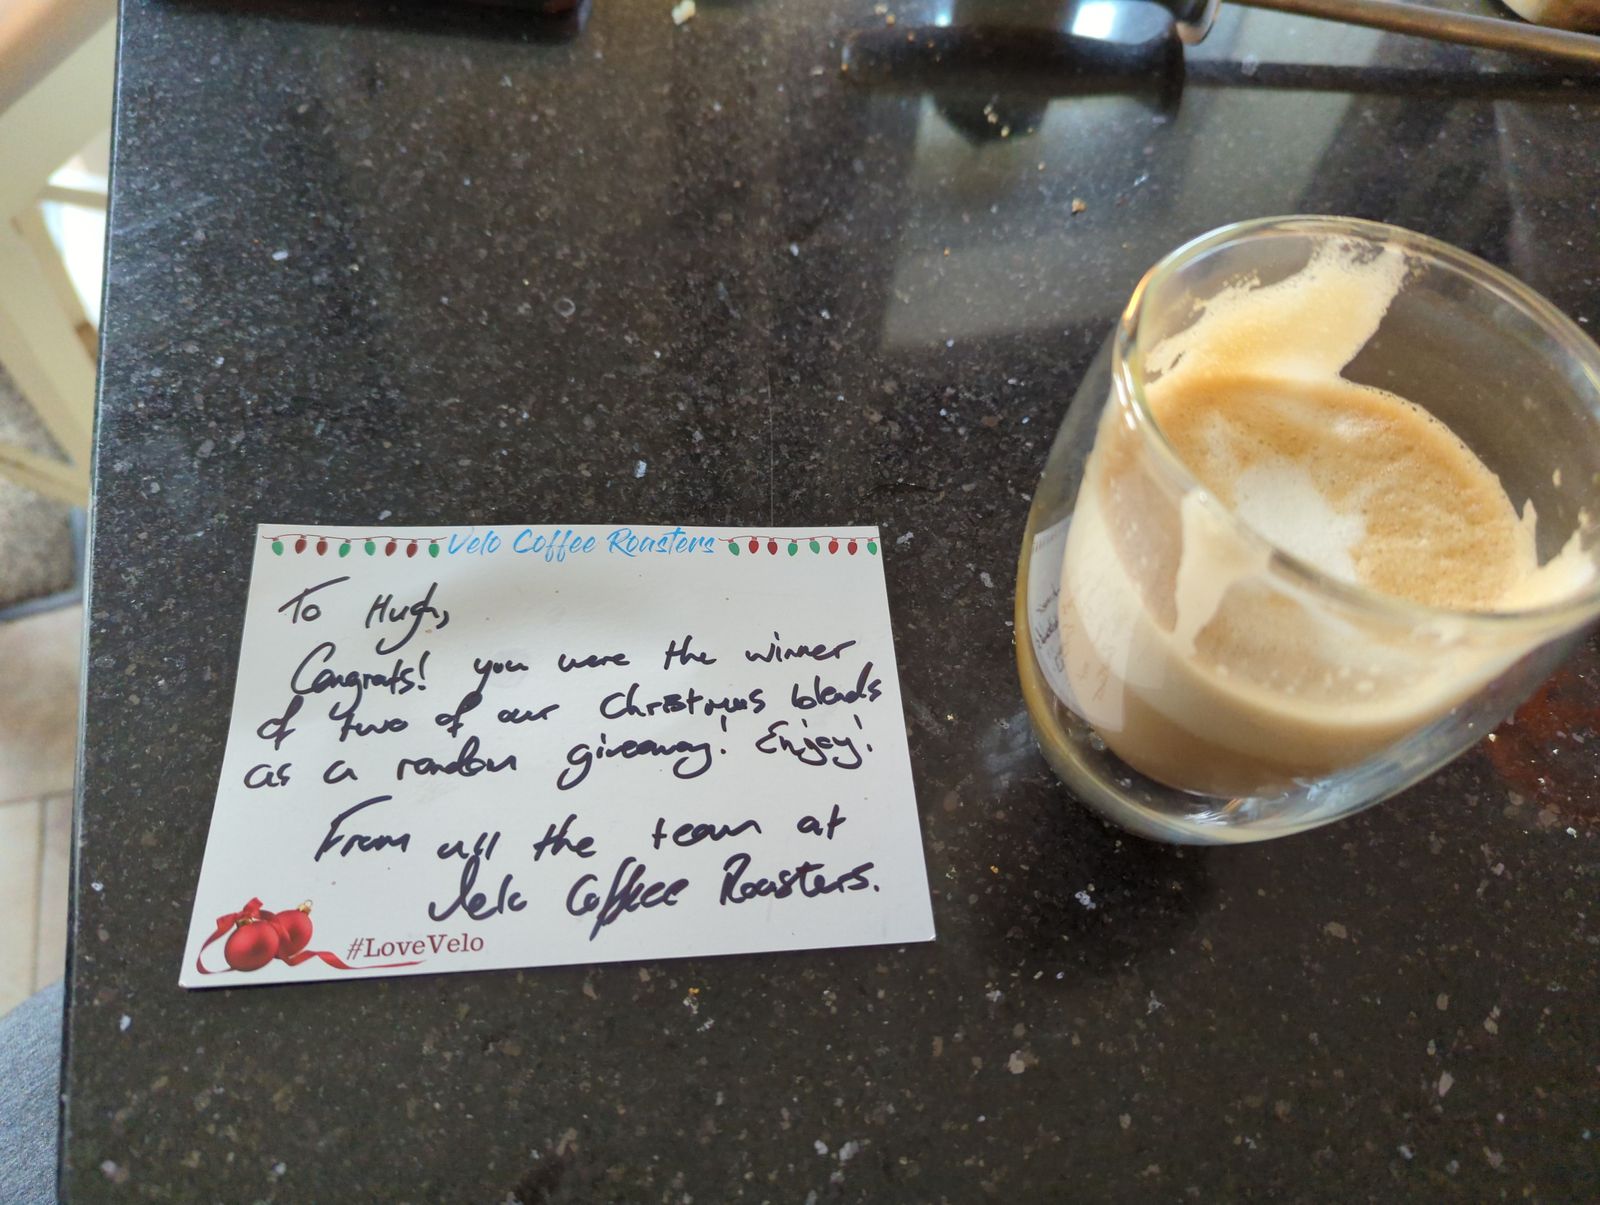 Velo Coffee Roasters
To Hugh,
Congrats! you were the winner
of two of our Christmas blends
as a random giveaway! Enjoy!
From all the team at
Velo Coffee Roasters.
#LoveVelo